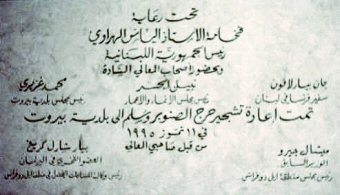 تحت رعاية
فخامة الأستاذ الياس الهراوي
رئيس الجمهورية اللبنانية
وبحضور أصحاب المعالي السادة
جان بيار لافون نبيل الجسر محمد غزيري
سفير فرنسا في لبنان رئيس مجلس الإنماء والإعمار رئيس مجلس بلدية بيروت
تمت إعادة تشجير حرج الصنوبر وسلم الى بلدية بيروت
في ١١ تموز ١٩٩٥
من قبل صاحبي المعالي
ميشال جيرو بيار شارل كريغ
الوزير السابق العضو الفخري في البرلمان
رئيس مجلس منطقة ايل دو فرانس رئيس وكالة المساحات الخضراء في منطقة ايل دو فرانس